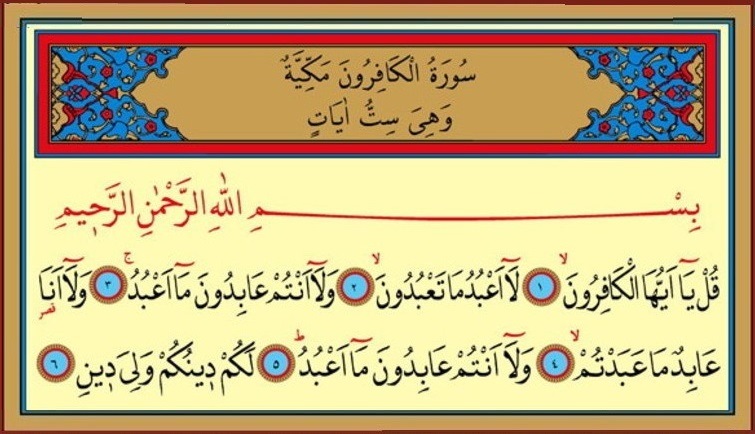 سُورَةُ الْكَافِرُونَ مَكِّيَّةٌ
وَهِىَ سِتُّ اٰيَاتٍ
بِسْمِ اللّٰهِ الرَّحْمٰنِ الرَّحٖيمِ
قُلْ يَٓا اَيُّهَا الْكَافِرُونَۙ ١ لَٓا اَعْبُدُ مَا تَعْبُدُونَۙ ٢ وَلَٓا اَنْتُمْ عَابِدُونَ مَٓا اَعْبُدُۚ ٣ وَلَٓا اَنَا۬
عَابِدٌ مَا عَبَدْتُمْۙ ٤ وَلَٓا اَنْتُمْ عَابِدُونَ مَٓا اَعْبُدُۜ ٥ لَكُمْ دٖينُكُمْ وَلِىَ دٖينِ ٦